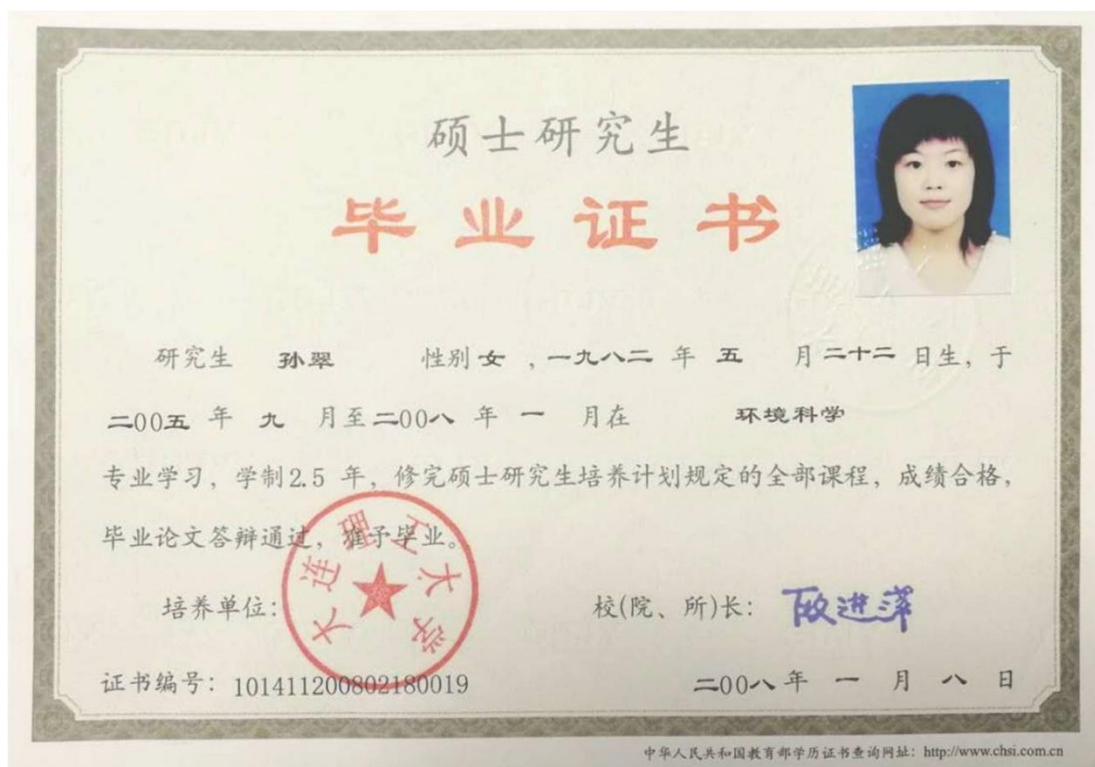 硕士研究生
毕业证书
研究生 孙翠 性别 女 ，一九八二 年 五 月 二十二 日生，于
二00五 年 九 月至 二00八 年 一 月在 环境科学
专业学习，学制2.5 年，修完硕士研究生培养计划规定的全部课程，成绩合格，
毕业论文答辩通过，准予毕业。
大连理工大学
培养单位： 校(院、所)长：
证书编号：101411200802180019 二00八 年 一 月 八 日
中华人民共和国教育部学历证书查询网址：http://www.chsi.com.cn